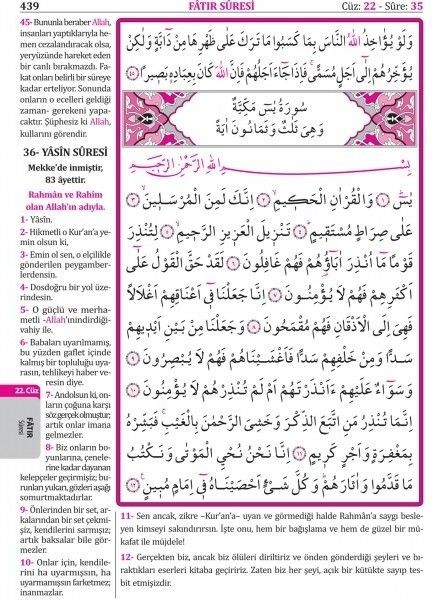 439
FÂTIR SÛRESİ
Cüz: 22 - Sûre: 35
45- Bununla beraber Allah,
insanları yaptıklarıyla he-
men cezalandıracak olsa,
yeryüzünde hareket eden
bir canlı bırakmazdı. Fa-
kat onları belirli bir süreye
kadar erteliyor. Sonunda
onların o ecelleri geldiği
zaman- gerekeni yapa-
caktır. Şüphesiz ki Allah,
kullarını görendir.
36- YÂSİN SÛRESİ
Mekke'de inmiştir,
83 âyettir.
Rahmân ve Rahîm
olan Allah'ın adıyla.
1- Yâsîn.
2- Hikmetli o Kur'an'a ye-
min olsun ki,
3- Emin ol sen, o elçilikle
gönderilen peygamber-
lerdensin.
4- Dosdoğru bir yol üze-
rindesin.
5- O güçlü ve merha-
metli -Allah'ınindirdiği-
vahiy ile.
6- Babaları uyarılmamış,
bu yüzden gaflet içinde
kalmış bir topluluğu uya-
rasın, tehlikeyi haber ve-
resin diye.
7- Andolsun ki, on-
ların çoğuna karşı
söz gerçek olmuştur;
artık onlar imana
gelmezler.
8- Biz onların bo-
yunlarına, çenele-
rine kadar dayanan
kelepçeler geçirmişiz; bu-
runları yukarı, gözleri aşağı
somurtmaktadırlar.
9- Önlerinden bir set, ar-
kalarından bir set çekmi-
şiz, kendilerini sarmışız;
artık baksalar bile gör-
mezler.
10- Onlar için, kendile-
rini ha uyarmışsın, ha
uyarmamışsın farketmez;
inanmazlar.
22. Cüz
FÂTIR
Sûresi
وَلَوْ يُؤَاخِذُ اللّٰهُ النَّاسَ بِمَا كَسَبُوا مَا تَرَكَ عَلٰى ظَهْرِهَا مِنْ دَٓابَّةٍ وَلٰكِنْ
يُؤَخِّرُهُمْ اِلٰٓى اَجَلٍ مُسَمًّىۚ فَاِذَا جَٓاءَ اَجَلُهُمْ فَاِنَّ اللّٰهَ كَانَ بِعِبَادِه۪ بَص۪يرًا ﴿٤٥﴾
سُورَةُ يٰسٓ مَكِّيَّةٌ
وَهِيَ ثَلَاثٌ وَثَمَانُونَ اٰيَةً
بِسْمِ اللّٰهِ الرَّحْمٰنِ الرَّح۪يمِ
يٰسٓ ﴿١﴾ وَالْقُرْاٰنِ الْحَك۪يمِ ﴿٢﴾ اِنَّكَ لَمِنَ الْمُرْسَل۪ينَ ﴿٣﴾
عَلٰى صِرَاطٍ مُسْتَق۪يمٍ ﴿٤﴾ تَنْز۪يلَ الْعَز۪يزِ الرَّح۪يمِ ﴿٥﴾ لِتُنْذِرَ
قَوْمًا مَٓا اُنْذِرَ اٰبَٓاؤُ۬هُمْ فَهُمْ غَافِلُونَ ﴿٦﴾ لَقَدْ حَقَّ الْقَوْلُ عَلٰٓى
اَكْثَرِهِمْ فَهُمْ لَا يُؤْمِنُونَ ﴿٧﴾ اِنَّا جَعَلْنَا ف۪ٓي اَعْنَاقِهِمْ اَغْلَالًا
فَهِيَ اِلَى الْاَذْقَانِ فَهُمْ مُقْمَحُونَ ﴿٨﴾ وَجَعَلْنَا مِنْ بَيْنِ اَيْد۪يهِمْ
سَدًّا وَمِنْ خَلْفِهِمْ سَدًّا فَاَغْشَيْنَاهُمْ فَهُمْ لَا يُبْصِرُونَ ﴿٩﴾
وَسَوَٓاءٌ عَلَيْهِمْ ءَاَنْذَرْتَهُمْ اَمْ لَمْ تُنْذِرْهُمْ لَا يُؤْمِنُونَ ﴿١٠﴾
اِنَّمَا تُنْذِرُ مَنِ اتَّبَعَ الذِّكْرَ وَخَشِيَ الرَّحْمٰنَ بِالْغَيْبِۚ فَبَشِّرْهُ
بِمَغْفِرَةٍ وَاَجْرٍ كَر۪يمٍ ﴿١١﴾ اِنَّا نَحْنُ نُحْيِ الْمَوْتٰى وَنَكْتُبُ
مَا قَدَّمُوا وَاٰثَارَهُمْۜ وَكُلَّ شَيْءٍ اَحْصَيْنَاهُ ف۪ٓي اِمَامٍ مُب۪ينٍ۟ ﴿١٢﴾
11- Sen ancak, zikre –Kur'an'a– uyan ve görmediği halde Rahmân'a saygı besle-
yen kimseyi sakındırırsın. İşte onu, hem bir bağışlama ve hem de güzel bir mü-
kafat ile müjdele!
12- Gerçekten biz, ancak biz ölüleri diriltiriz ve önden gönderdiği şeyleri ve bı-
raktıkları eserleri kitaba geçiririz. Zaten biz her şeyi, açık bir kütükte sayıp tes-
bit etmişizdir.